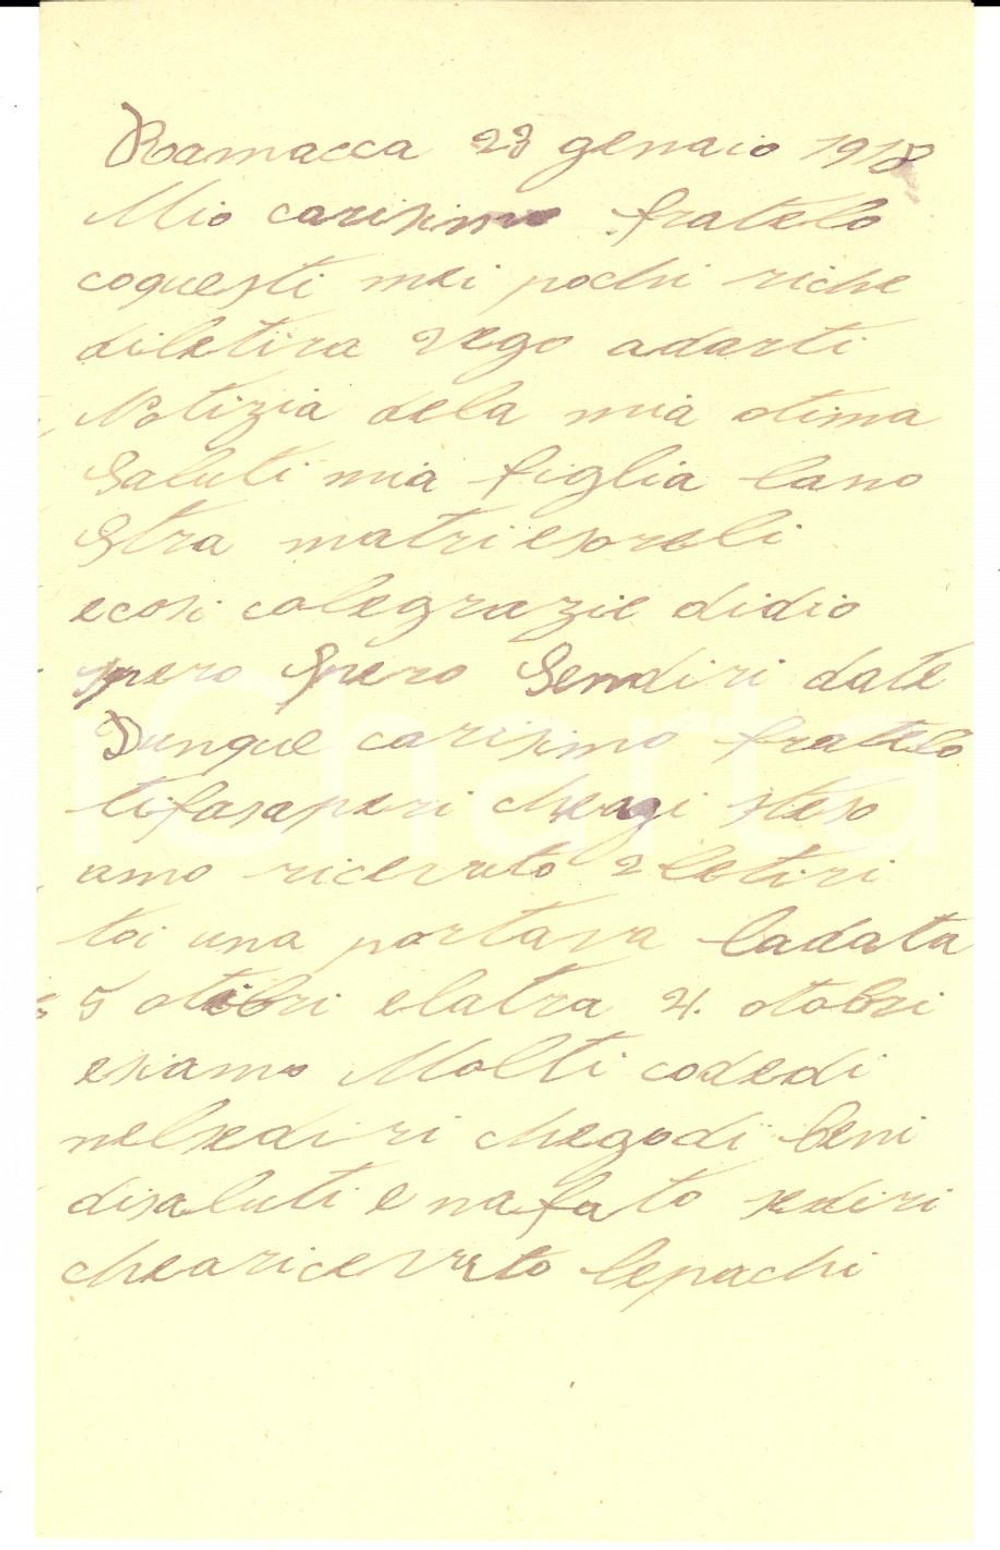 Ramacca 23 genaio 1918
Mio carisimo fratelo
coquesti mei pochi riche
diletira vego adarti
Notizia dela mia otima
Saluti mia figlia lano
Stra matri esoreli
ecosi colegrazie didio
spero Spero Sendiri date
Dunque carisimo fratelo
tifasaperi cheogi steso
amo ricevuto 2 letiri
toi una portava ladata
5 otobri elatra 21. otobri
esiamo Molti codedi
nelsediri chegodi beni
disaluti e nafato sediri
chearicevuto lepachi
iCharta